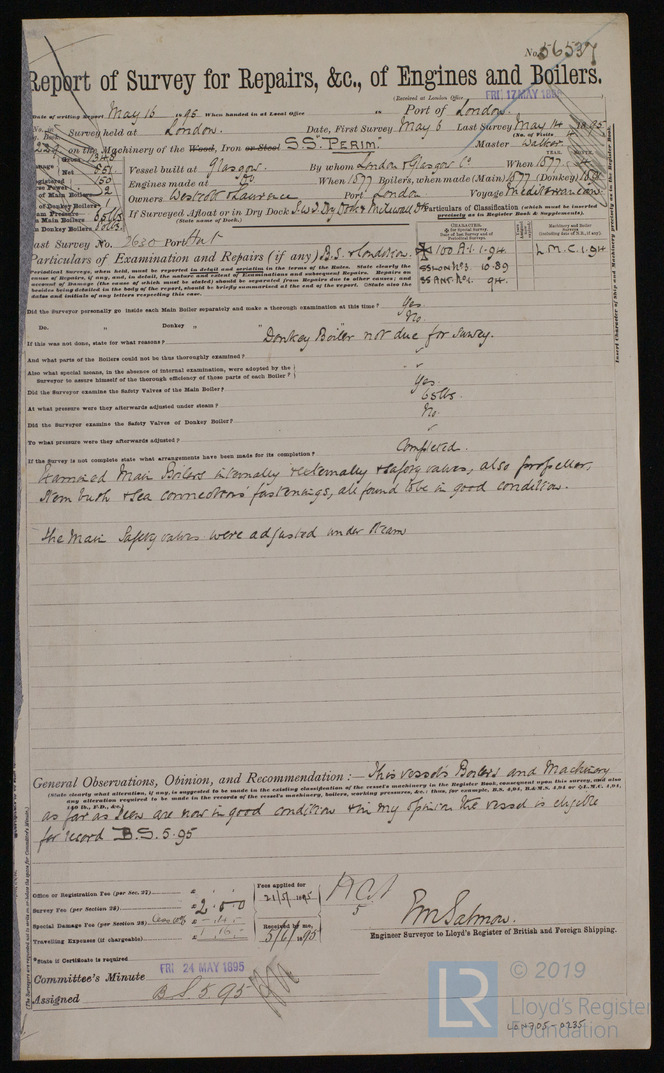 No. 56537
Report of Survey for Repairs, &c., of Engines and Boilers.
(Received at London Office FRI. 17 MAY 1895
Date of writing Report May 16 1895 When handed in at Local Office 18 Port of London.
No. in Reg. Book. Survey held at London. Date, First Survey May 6 Last Survey May 14 1895
(No. of Visits
229 on the Machinery of the Wood, Iron or Steel S.S. PERIM. Master Walker
Gross 1345
Net 851
Vessel built at Glasgow. By whom London & Glasgow Co When 1877.
YEAR. MONTH.
Registered 150
Engines made at Do When 1877 Boilers, when made (Main) 1877 (Donkey)
of Main Boilers 2
Owners Westcott & Laurence Port London Voyage Mediterranean
of Donkey Boilers 1
in Main Boilers 65 lbs
If Surveyed Afloat or in Dry Dock
(State name of Dock.)
Particulars of Classification (which must be inserted precisely as in Register Book & Supplements).
Last Survey No. Port
Particulars of Examination and Repairs (if any) B.S. & Condition.
CHARACTER.
Machinery and Boiler Surveys (including date of N.B., if any).
100 A.1. 1.94
L.M.C. 1.94
SS LON No3. 10.89
SS ANT. No1. 94.
Periodical Surveys, when held, must be reported in detail and seriatim in the terms of the Rules. State clearly the
nature and extent of Examinations and subsequent Repairs. Repairs on
account of Damage (the cause of which must be stated) should be separated from Repairs due to other causes; and
besides being detailed in the body of the report, should be briefly summarized at the end of the report. State also the
dates and initials of any letters respecting this case.
Did the Surveyor personally go inside each Main Boiler separately and make a thorough examination at this time? Yes
Do. „ Donkey „ „ No
If this was not done, state for what reasons? Donkey Boiler not due for survey.
And what parts of the Boilers could not be thus thoroughly examined?
Also what special means, in the absence of internal examination, were adopted by the
Surveyor to assure himself of the thorough efficiency of those parts of each Boiler?
Did the Surveyor examine the Safety Valves of the Main Boiler? Yes.
At what pressure were they afterwards adjusted under steam? 65 lbs.
Did the Surveyor examine the Safety Valves of Donkey Boiler? No.
To what pressure were they afterwards adjusted?
If the Survey is not complete state what arrangements have been made for its completion? Completed.
Examined Main Boilers internally & externally & safety valves, also propeller,
Stern bush & sea connections fastenings, all found to be in good condition.
The Main Safety valves were adjusted under steam
General Observations, Opinion, and Recommendation :— This vessel's Boilers and Machinery
(State clearly what alteration, if any, is suggested to be made in the existing classification of the vessel's machinery in the Register Book, consequent upon this survey, and also
any alteration required to be made in the records of the vessel's machinery, boilers, working pressures, &c.: thus, for example, B.S. 4,94, B.&M.S. 4,94 or L.M.C. 4,94,
140 lb., F.D., &c.)
as far as seen are now in good condition & in my opinion the vessel is eligible
for record B.S. 5.95
Office or Registration Fee (per Sec. 27) £
Survey Fee (per Section 28) £ 2.0.0
Special Damage Fee (per Section 28) £
Travelling Expenses (if chargeable)
Fees applied for
21/5/1895
Received by me,
5/6/1895
E M Salmon.
Engineer Surveyor to Lloyd's Register of British and Foreign Shipping.
*State if Certificate is required
Committee's Minute FRI 24 MAY 1895
Assigned B S. 5.95
Insert Character of Ship and Machinery precisely as in the Register Book.
LR
© 2019
Lloyd's Register
Foundation
LON705-0235